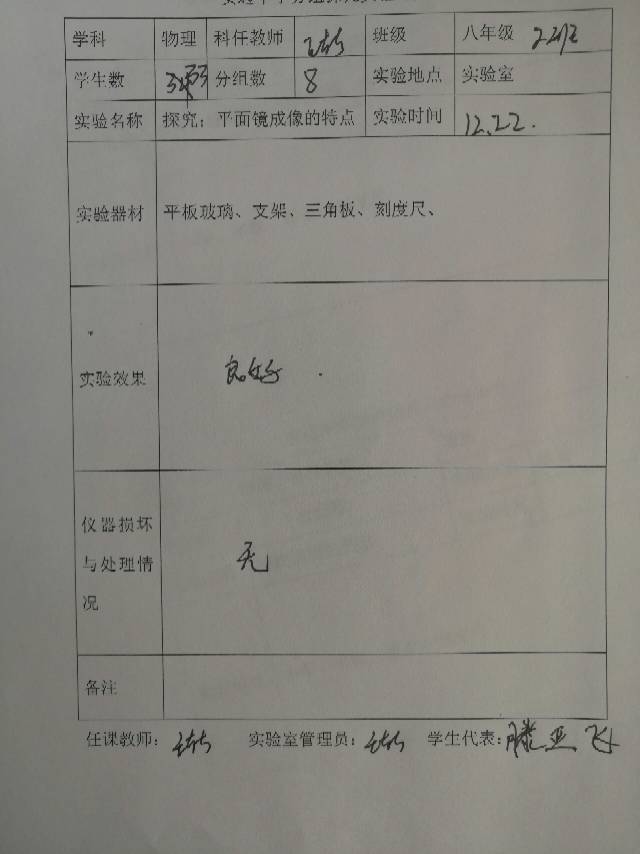 学科 物理 科任教师 班级 八年级
学生数 分组数 8 实验地点 实验室
实验名称 探究：平面镜成像的特点 实验时间 12.22.
实验器材 平板玻璃、支架、三角板、刻度尺、
实验效果 良好.
仪器损坏
与处理情
况
无
备注
任课教师： 实验室管理员： 学生代表：滕亚飞